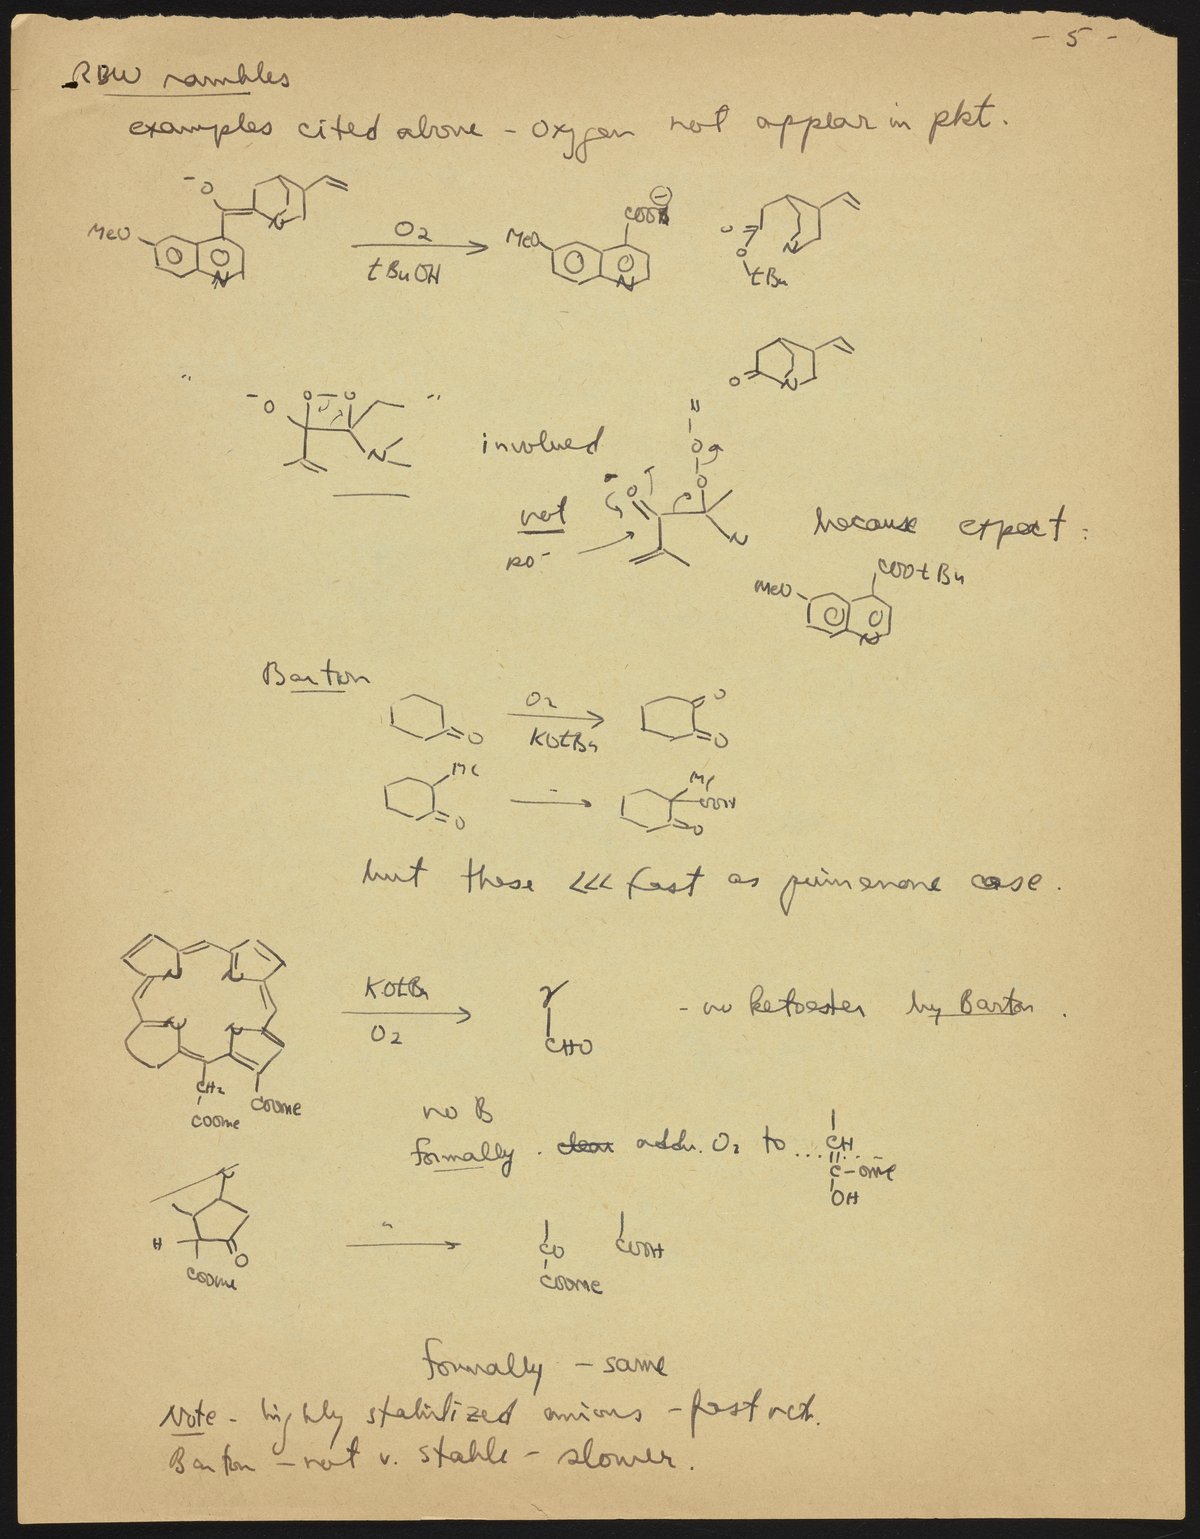 - 5 -
RBW rambles
examples cited above - oxygen not appear in pkt.
-O
MeO
N
N
O2
tBuOH
MeO
COO
-
N
O
O
tBu
N
O
N
"
-O
O-O
N
"
involved
not
RO-
H
O
O
O
N
because expect:
MeO
COOtBu
N
Barton
O
O2
KOtBu
O
O
Me
O
"
Me
COOH
O
but these <<< fast as quinenone case.
N
N
N
N
CH2
COOMe
COOMe
KOtBu
O2
γ
CHO
- no ketoester by Barton.
no B
formally. addn. O2 to ...
CH
C-OMe
OH
N
H
O
COOMe
"
CO
COOMe
COOH
formally - same
Note - highly stabilized anions - fast rct.
Barton - not v. stable - slower.